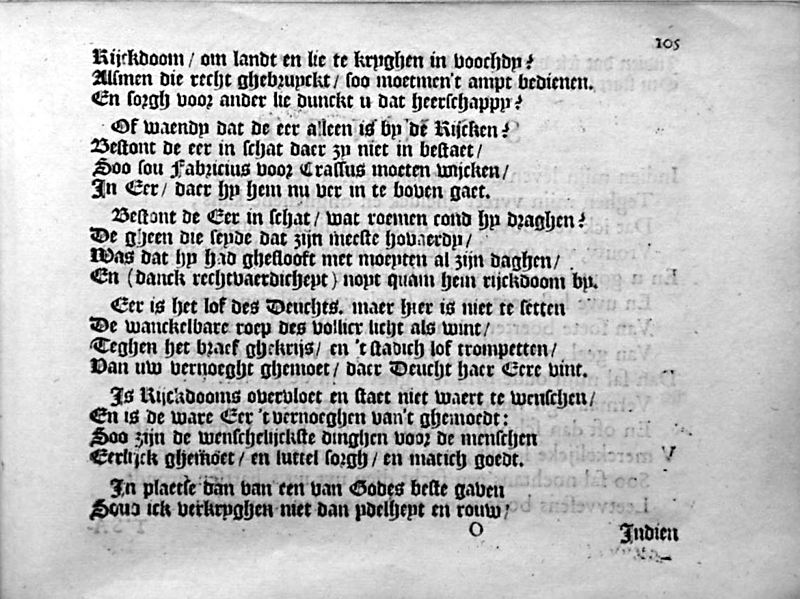 105
Rijckdoom / om landt en lie te kryghen in voochdy?
Alsmen die recht ghebruyckt / soo moetmen't ampt bedienen.
En sorgh voor ander lie dunckt u dat heerschappy?
Of waendy dat de eer alleen is by de Rijcken?
Bestont de eer in schat daer zy niet in bestaet /
Soo sou Fabricius voor Crassus moeten wijcken /
In Eer / daer hy hem nu ver in te boven gaet.
Bestont de Eer in schat / wat roemen cond hy draghen?
De gheen die seyde dat zijn meeste hovaerdy /
Was dat hy had gheslooft met moeyten al zijn daghen /
En (danck rechtvaerdicheyt) noyt quam hem rijckdoom by.
Eer is het lof des Deuchts. maer hier is niet te setten
De wanckelbare roep des vollicx licht als wint /
Teghen het braef ghekrijs / en 't stadich lof trompetten /
Van uw vernoeght ghemoet / daer Deucht haer Eere vint.
Is Rijckdooms overvloet en staet niet waert te wenschen /
En is de ware Eer 't vernoeghen van't ghemoedt:
Soo zijn de wenschelijckste dinghen voor de menschen
Eerlijck ghemoet / en luttel sorgh / en matich goedt.
In plaetse dan van een van Godes beste gaven
Soud ick verkryghen niet dan ydelheyt en rouw /
O
Indien